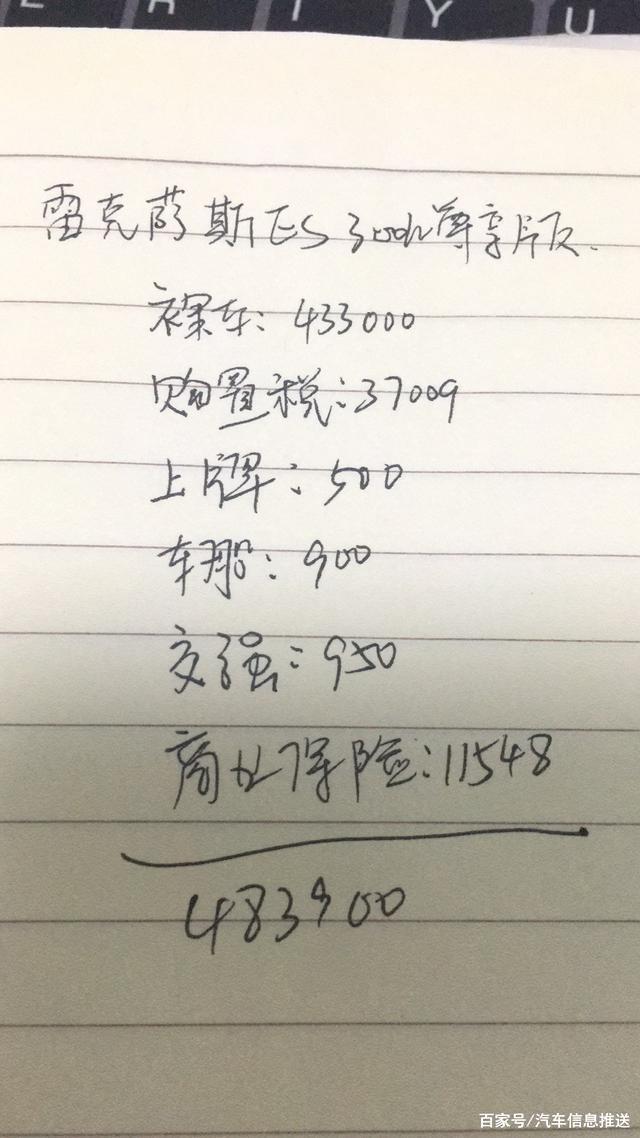 E R T Y U
雷克萨斯ES 300h尊享版.
裸车: 433000
购置税: 37009
上牌: 500
车船: 900
交强: 950
商业保险: 11548
483900
百家号/汽车信息推送